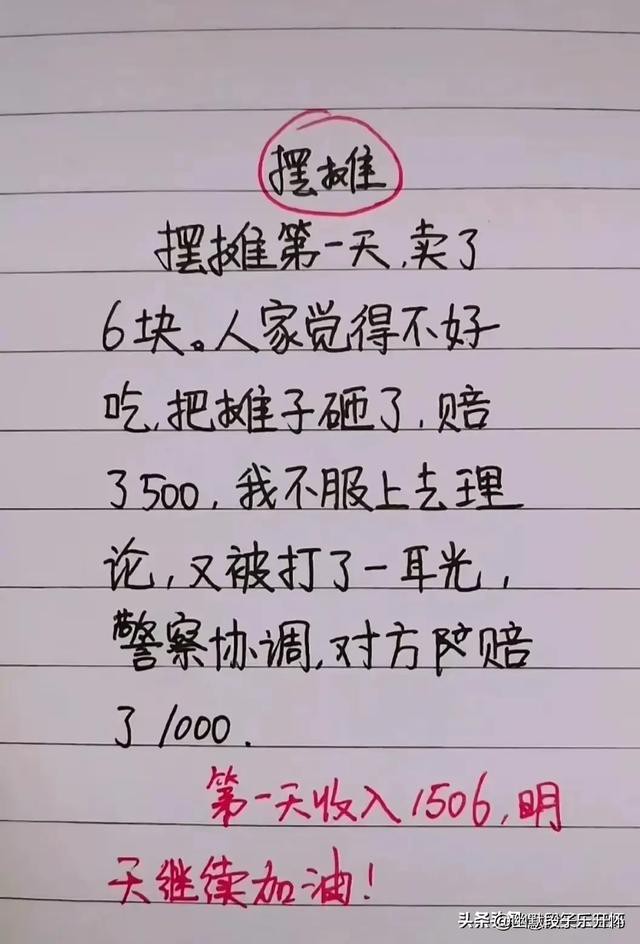 摆摊
摆摊第一天,卖了
6块。人家觉得不好
吃,把摊子砸了,赔
了500,我不服上去理
论,又被打了一耳光,
警察协调,对方赔
了1000.
第一天收入1506,明
天继续加油!
头条@幽默段子乐开怀